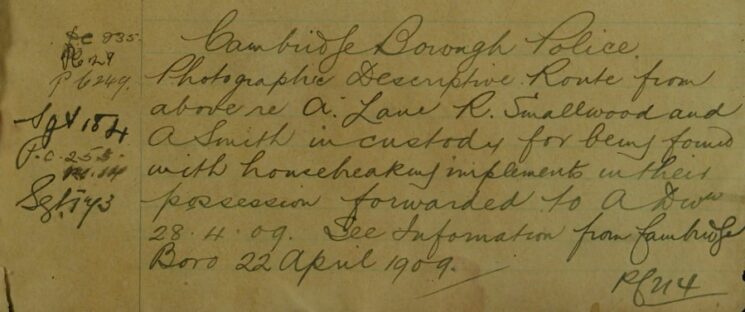 Sc 935.
Pc 29
Pc 249.
Sgt 184
P.c. 255.
Sgt. 173
Cambridge Borough Police.
Photographic Descriptive Route from
above re A. Lane R. Smallwood and
A Smith in custody for being found
with housebreaking implements in their
possession forwarded to A Dwn
28.4.09. See Information from Cambridge
Boro 22 April 1909.